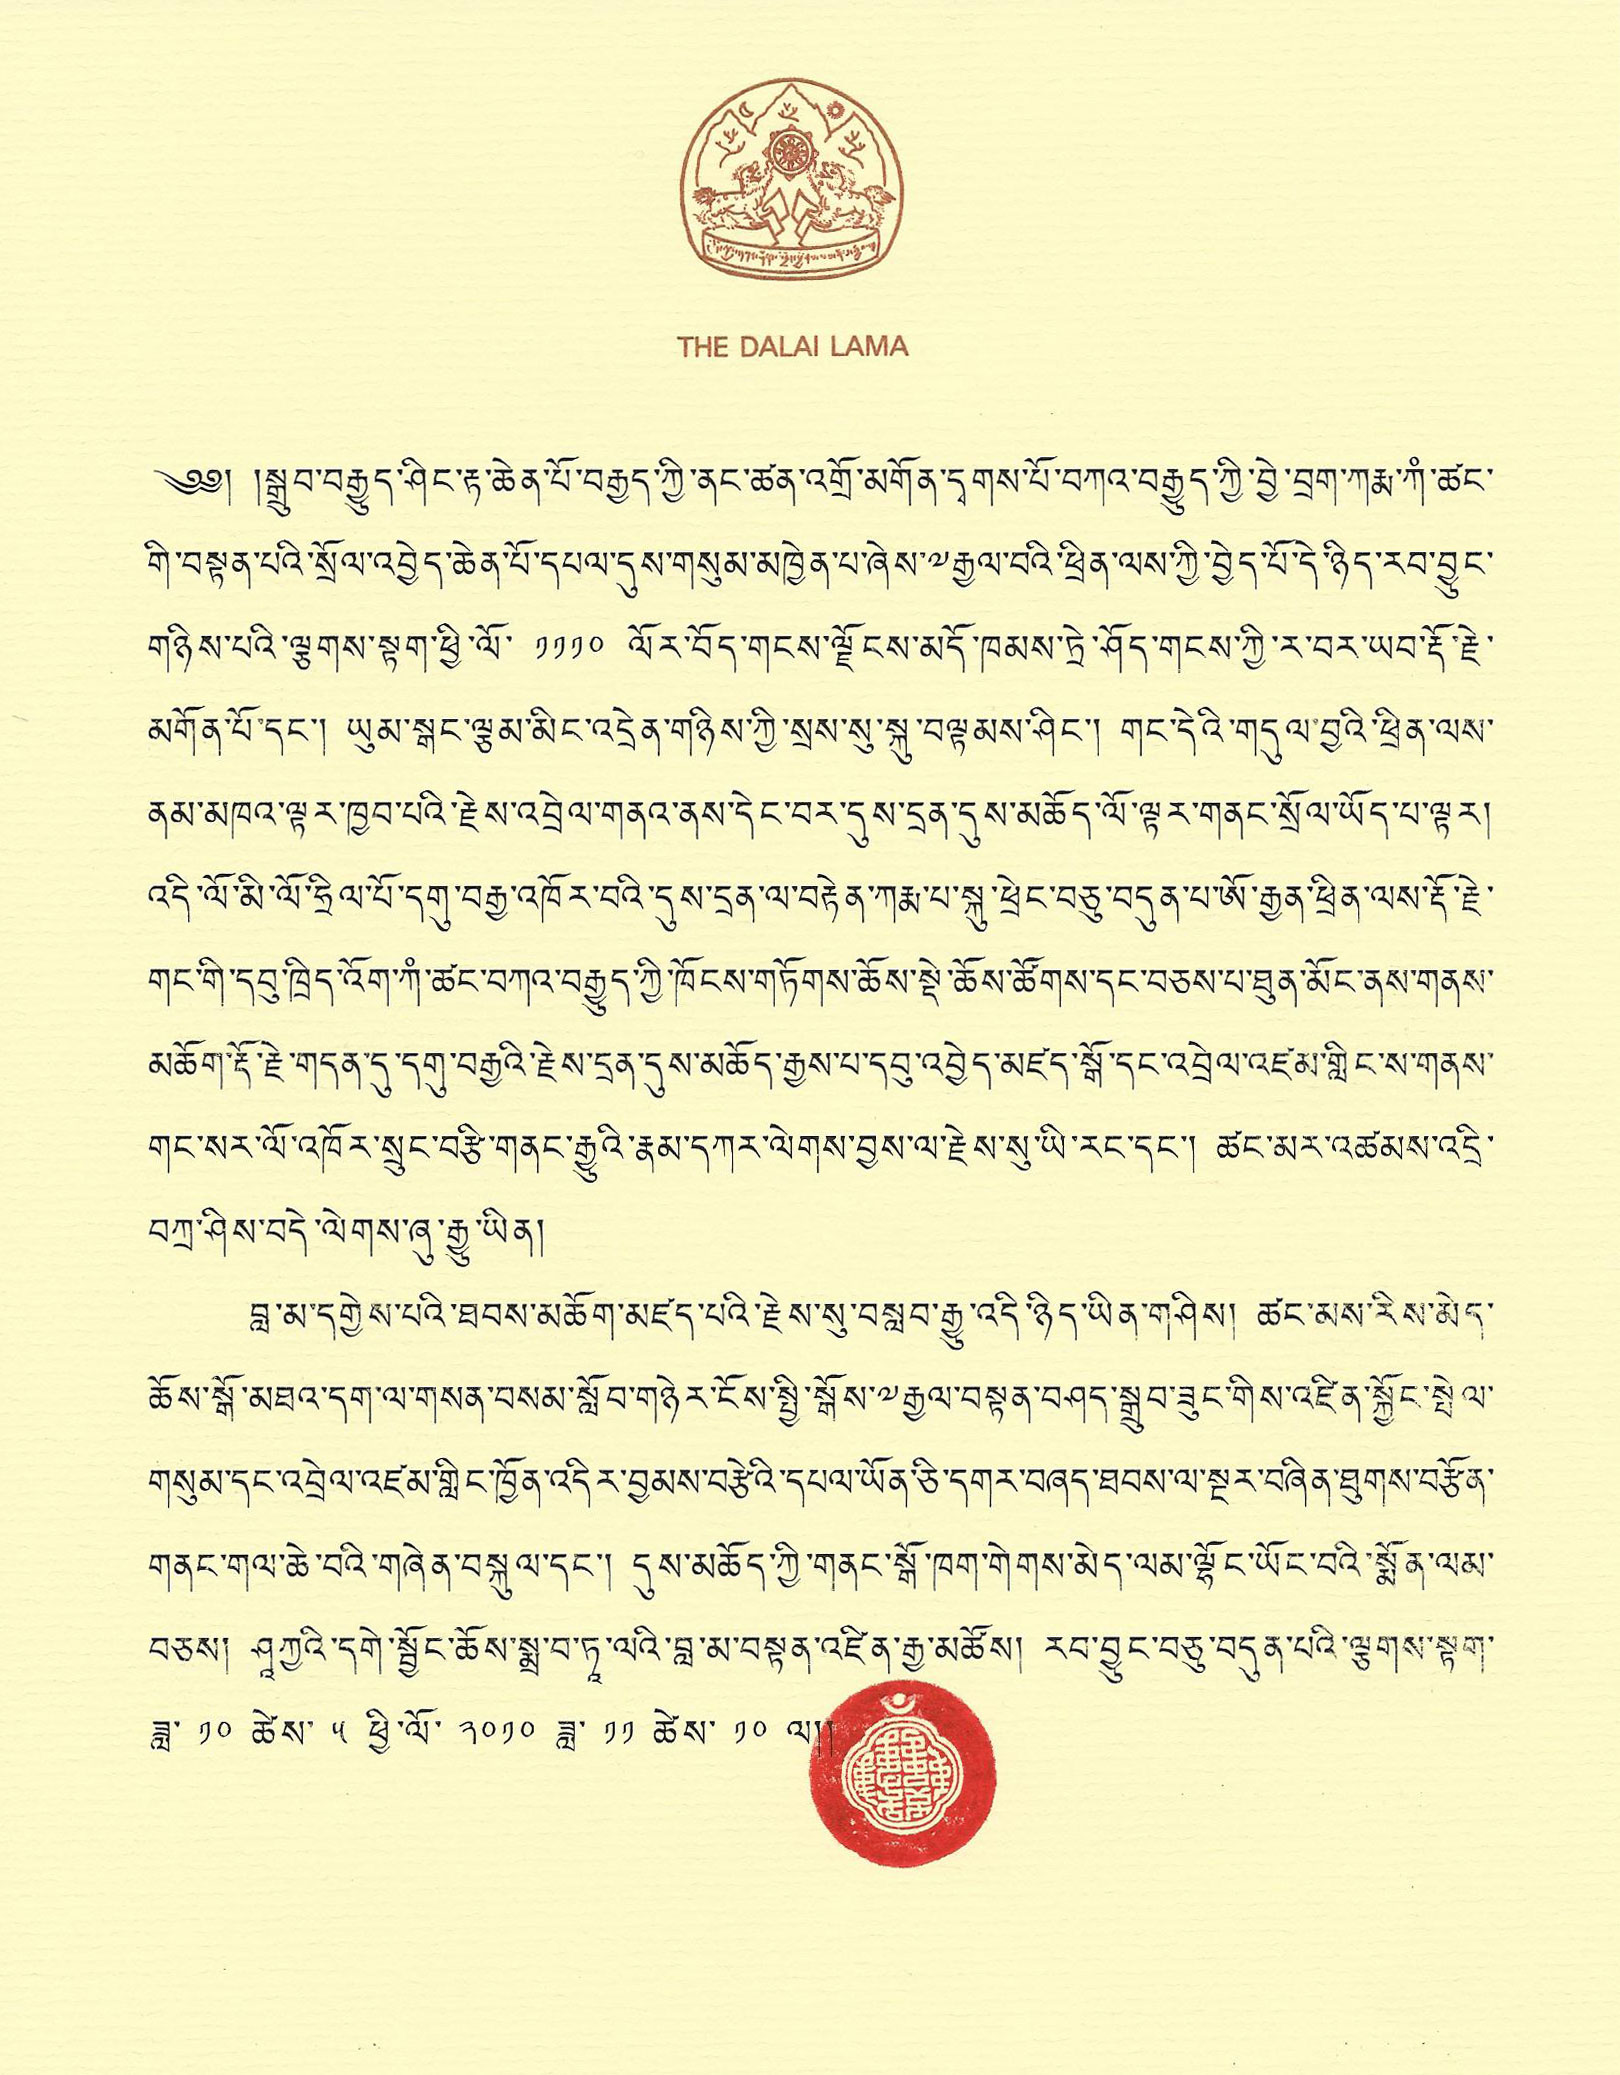 THE DALAI LAMA
༄༅། །སྒྲུབ་བརྒྱུད་ཤིང་རྟ་ཆེན་པོ་བརྒྱད་ཀྱི་ནང་ཚན་འགྲོ་མགོན་དྭགས་པོ་བཀའ་བརྒྱུད་ཀྱི་བྱེ་བྲག་ཀརྨ་ཀཾ་ཚང་
གི་བསྟན་པའི་སྲོལ་འབྱེད་ཆེན་པོ་དཔལ་དུས་གསུམ་མཁྱེན་པ་ཞེས་༧རྒྱལ་བའི་ཕྲིན་ལས་ཀྱི་བྱེད་པོ་དེ་ཉིད་རབ་བྱུང་
གཉིས་པའི་ལྕགས་སྟག་ཕྱི་ལོ་ ༡༡༡༠ ལོར་བོད་གངས་ལྗོངས་མདོ་ཁམས་ཏྲེ་ཤོད་གངས་ཀྱི་ར་བར་ཡབ་རྡོ་རྗེ་
མགོན་པོ་དང་། ཡུམ་སྒང་ལྕམ་མིང་འདྲེན་གཉིས་ཀྱི་སྲས་སུ་སྐུ་བལྟམས་ཤིང་། གང་དེའི་གདུལ་བྱའི་ཕྲིན་ལས་
ནམ་མཁའ་ལྟར་ཁྱབ་པའི་རྗེས་འབྲེལ་གནའ་ནས་དེང་བར་དུས་དྲན་དུས་མཆོད་ལོ་ལྟར་གནང་སྲོལ་ཡོད་པ་ལྟར།
འདི་ལོ་མི་ལོ་ཧྲིལ་པོ་དགུ་བརྒྱ་འཁོར་བའི་དུས་དྲན་ལ་བརྟེན་ཀརྨ་པ་སྐུ་ཕྲེང་བཅུ་བདུན་པ་ཨོ་རྒྱན་ཕྲིན་ལས་རྡོ་རྗེ་
གང་གི་དབུ་ཁྲིད་འོག་ཀཾ་ཚང་བཀའ་བརྒྱུད་ཀྱི་ཁོངས་གཏོགས་ཆོས་སྡེ་ཆོས་ཚོགས་དང་བཅས་པ་ཐུན་མོང་ནས་གནས་
མཆོག་རྡོ་རྗེ་གདན་དུ་དགུ་བརྒྱའི་རྗེས་དྲན་དུས་མཆོད་རྒྱས་པ་དབུ་འབྱེད་མཛད་སྒོ་དང་འབྲེལ་འཛམ་གླིང་ས་གནས་
གང་སར་ལོ་འཁོར་སྲུང་བརྩི་གནང་རྒྱུའི་རྣམ་དཀར་ལེགས་བྱས་ལ་རྗེས་སུ་ཡི་རང་དང་། ཚང་མར་འཚམས་འདྲི་
བཀྲ་ཤིས་བདེ་ལེགས་ཞུ་རྒྱུ་ཡིན།
བླ་མ་དགྱེས་པའི་ཐབས་མཆོག་མཛད་པའི་རྗེས་སུ་བསླབ་རྒྱུ་འདི་ཉིད་ཡིན་གཤིས། ཚང་མས་རིས་མེད་
ཆོས་སྒོ་མཐའ་དག་ལ་གསན་བསམ་སློབ་གཉེར་ངོས་སྤྱི་སྒོས་༧རྒྱལ་བསྟན་བཤད་སྒྲུབ་ཟུང་གིས་འཛིན་སྐྱོང་སྤེལ་
གསུམ་དང་འབྲེལ་འཛམ་གླིང་ཁྱོན་འདིར་བྱམས་བརྩེའི་དཔལ་ཡོན་ཅི་དགར་བཞད་ཐབས་ལ་སྔར་བཞིན་ཐུགས་བརྩོན་
གནང་གལ་ཆེ་བའི་གཞེན་བསྐུལ་དང་། དུས་མཆོད་ཀྱི་གནང་སྒོ་ཁག་གེགས་མེད་ལམ་ལྷོང་ཡོང་བའི་སྨོན་ལམ་
བཅས། ཤཱཀྱའི་དགེ་སྦྱོང་ཆོས་སྨྲ་བ་ཏཱ་ལའི་བླ་མ་བསྟན་འཛིན་རྒྱ་མཚོས། རབ་བྱུང་བཅུ་བདུན་པའི་ལྕགས་སྟག་
ཟླ་ ༡༠ ཚེས་ ༥ ཕྱི་ལོ་ ༢༠༡༠ ཟླ་ ༡༡ ཚེས་ ༡༠ ལ།།